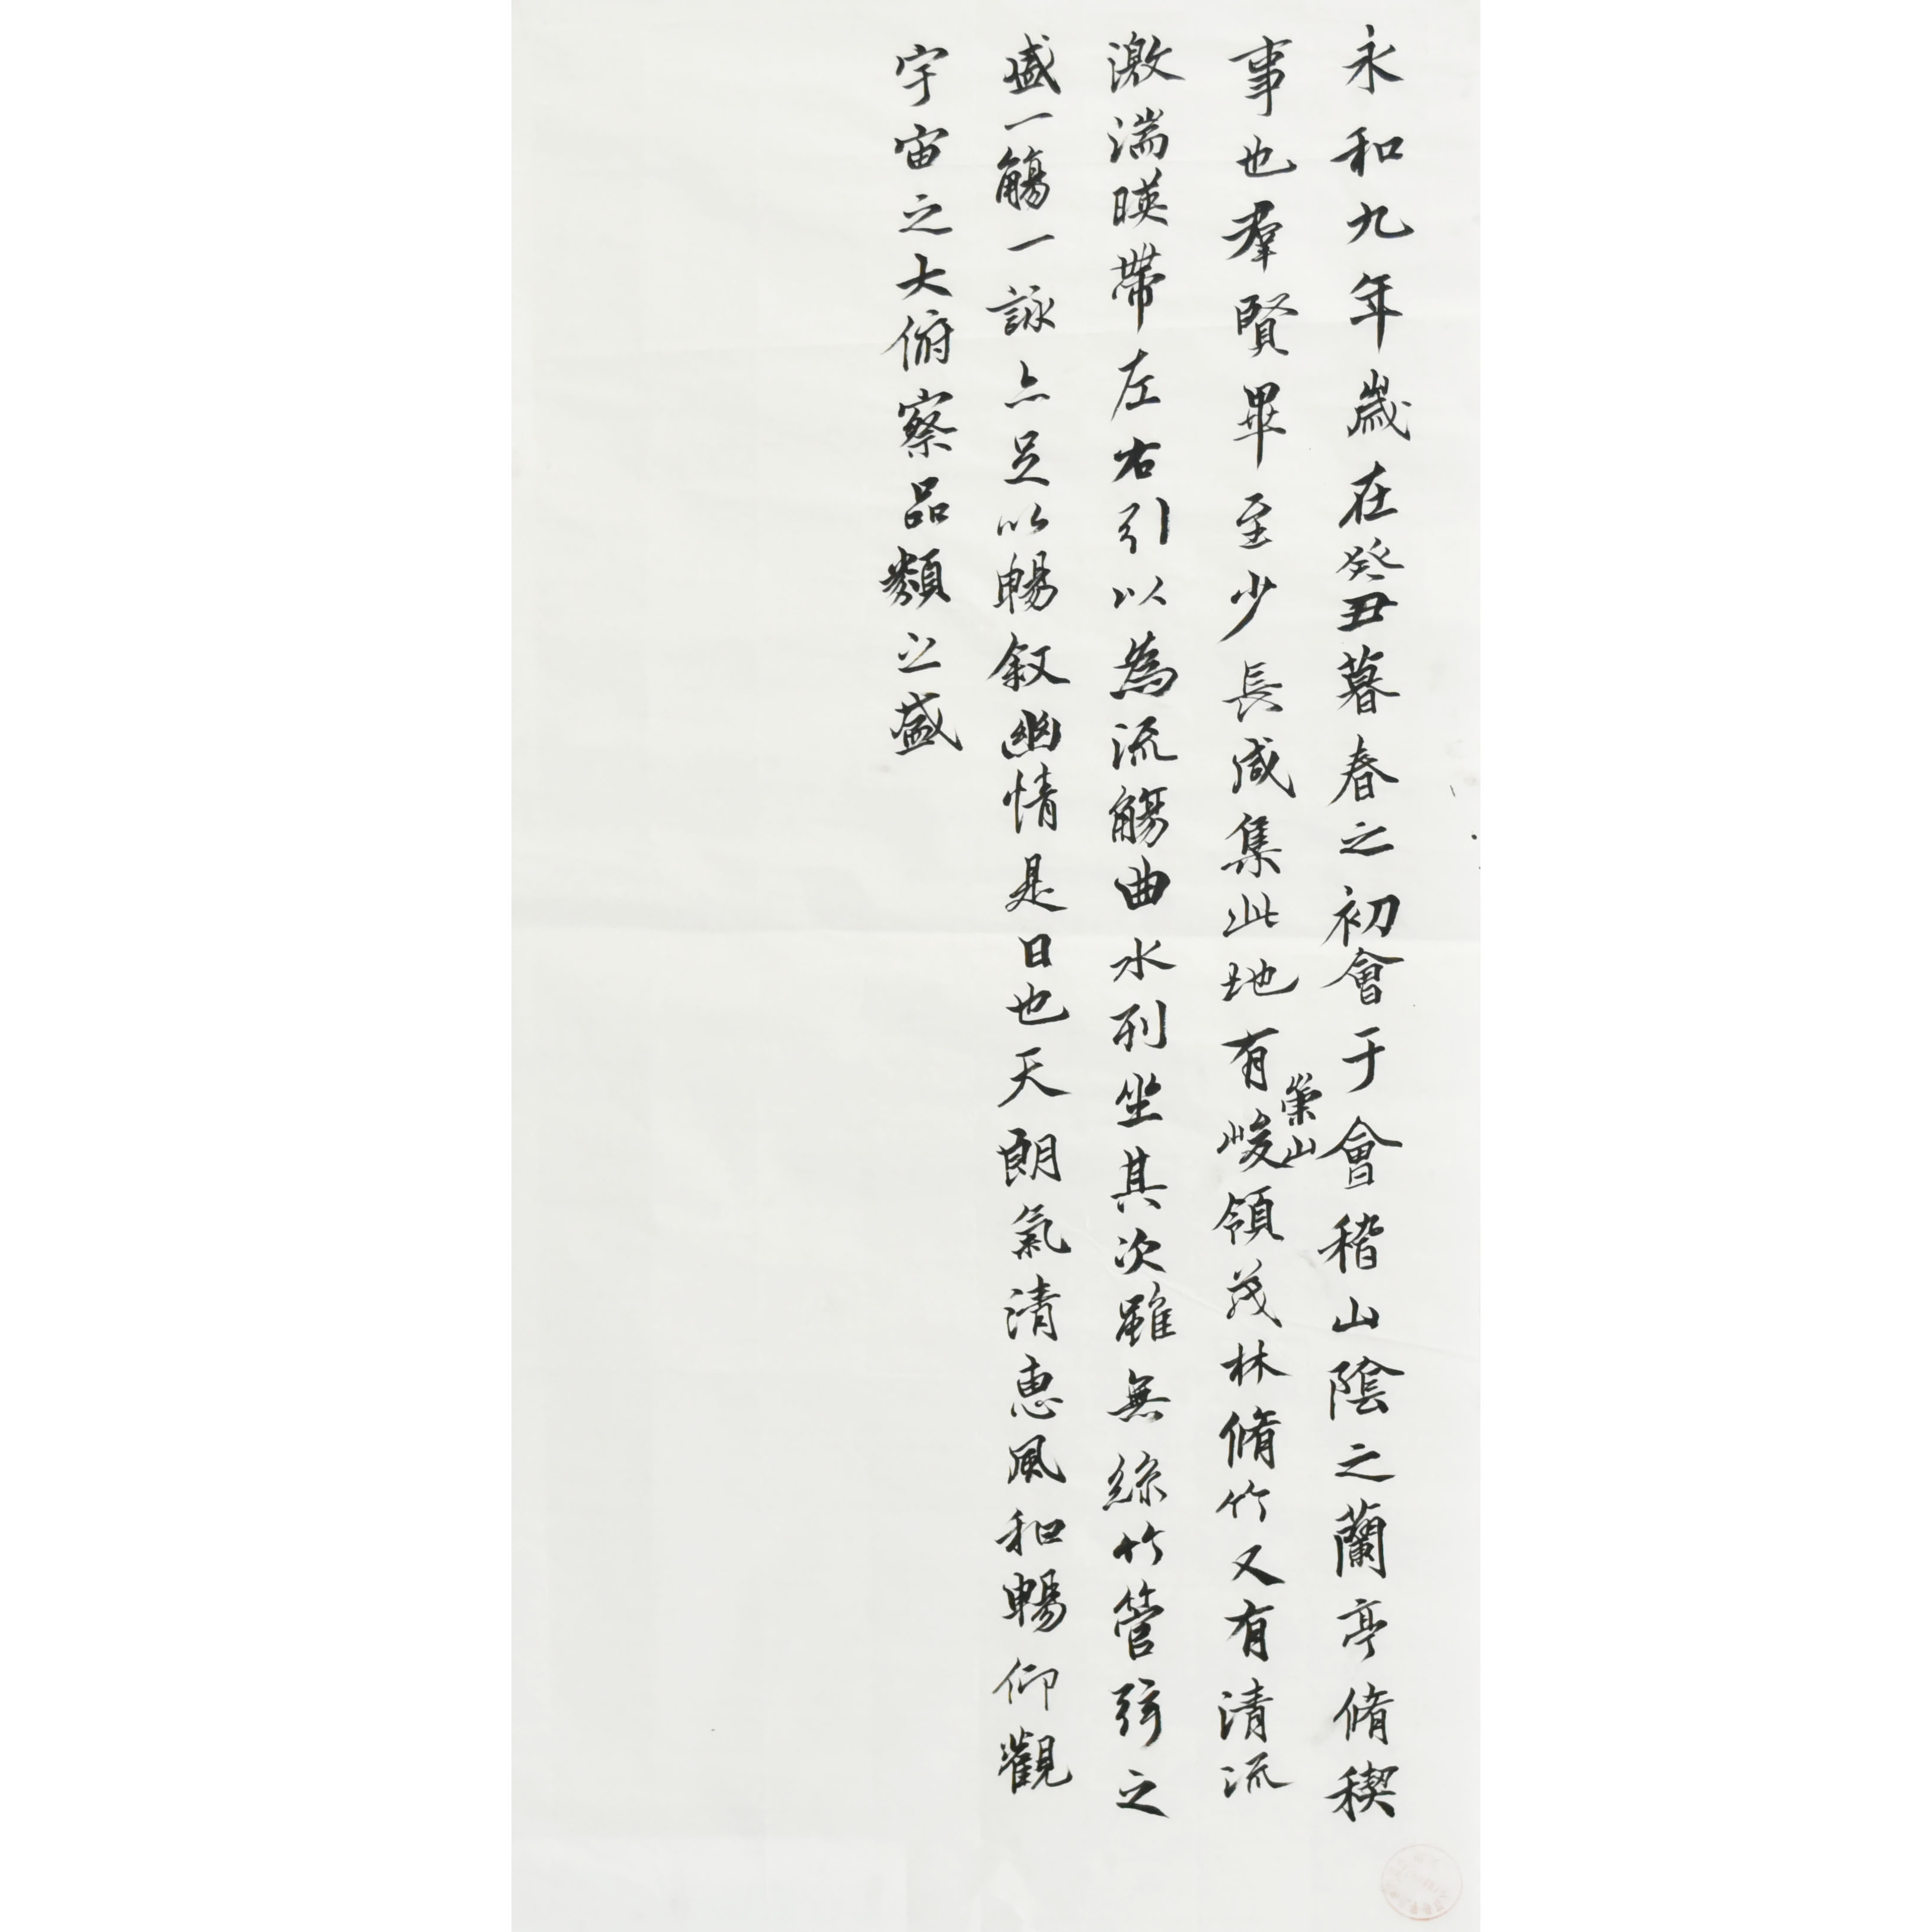 永和九年歲在癸丑暮春之初會于會稽山陰之蘭亭脩稧
事也羣賢畢至少長咸集此地有崇山峻領茂林脩竹又有清流
激湍暎帶左右引以為流觴曲水列坐其次雖無絲竹管弦之
盛一觴一詠亦足以暢叙幽情是日也天朗氣清惠風和暢仰觀
宇宙之大俯察品類之盛